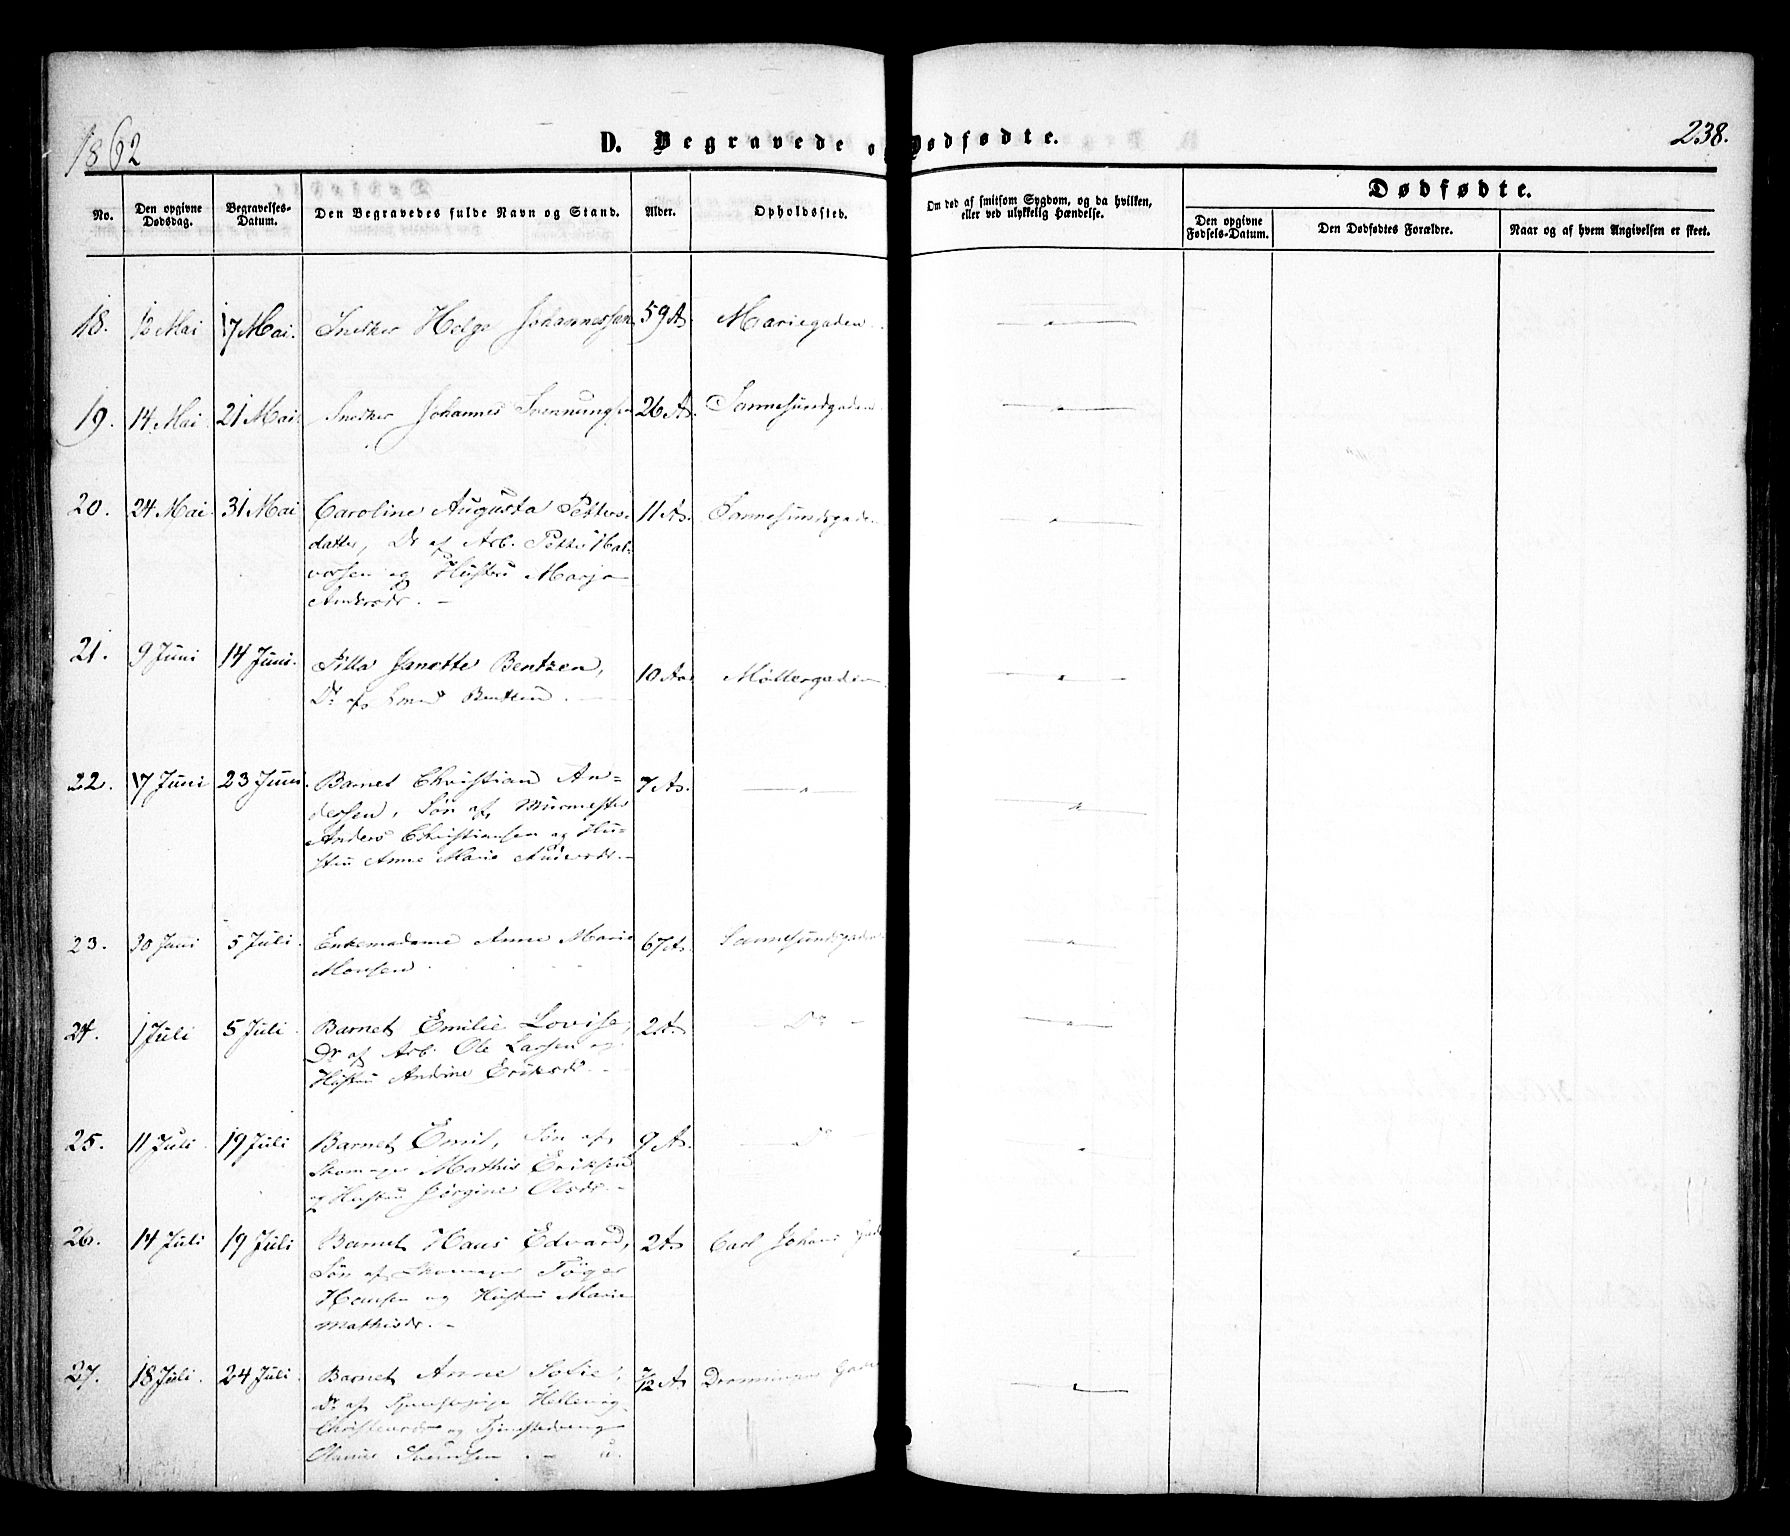 1862
D. Begravede o dødfødte.
238.
No.
Den opgivne Dødsdag.
Begravelses-Datum.
Den Begravedes fulde Navn og Stand.
Alder.
Opholdssted.
Om død af smitsom Sygdom, og da hvilken, eller ved ulykkelig Hændelse.
Dødfødte.
Den opgivne Fødsels-Datum.
Den Dødfødtes Forældre.
Naar og af hvem Angivelsen er skeet.
18. 12 Mai 17 Mai. Snedker Helge Johannessen 59 As Mariegaden
19. 14 Mai 21 Mai Snedker Johannes Svennungsen 26 As. Sannesundgaden
20. 24 Mai 31 Mai Caroline Augusta Petters- 11 As. Sannesundsgaden
datter, Dr af Arb. Petter Hal-
vorsen og Hustru Marja
Andersdr. -
21. 9 Juni 14 Juni. Janette Bentzen, 10 Aar Møllergaden
Dr af Bentzen
22. 17 Juni 23 Juni Barnet Christian An- 7 As. - " -
dersen, Søn af Murmester
Anders Christiansen og Hu-
stru Anne Marie Andersdr. -
23. 30 Juni 5 Juli. Enkemadame Anne Marie 67 As. Sannesundsgaden
Monsen
24. 1 Juli 5 Juli. Barnet Emilie Lovise, 2 As. - Do -
Dr af Arb. Ole Larsen og
Hustru Andine Eriksdr.
25. 11 Juli. 19 Juli Barnet Emil, Søn af 9 As. - Do
Skomager Mathis Eriksen
og Hustru Jørgine Olsdr. -
26. 14 Juli 19 Juli Barnet Hans Edvard, 2 As Carl Johans Gade
Søn af Skomager Tøger
Hansen og Hustru Marie
Mathisdr. -
27. 18 Juli. 24 Juli. Barnet Anne Sofie, 7/12 As Dronningens Gade
Dr af Tjenestepige Hellevig
Christensdr og Tjenestedreng
Olaus Svendsen. - u.